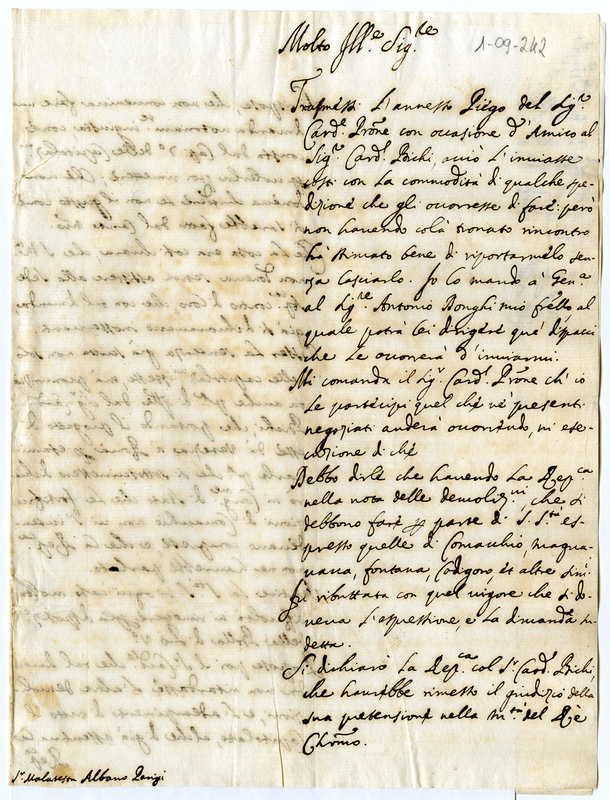 Molto Ill.e Sig.re
1-09-242
Trasmessi l'annesso Piego del Sig.r
Card.l Prone con occasione d'Amico al
Sig.r Card.l Bichi, acciò l'inviasse
costì con la commodità di qualche spe-
dizione che gli occorresse di fare: però
non havendo colà trovato rincontro
hà stimato bene di riportarmelo sen-
za lasciarlo. Io lo mando à Gen.a
al Sig.re Antonio Bonghi mio frello al
quale potrà lei dirigere que' dispacci
che le occorrerà d'inviarmi.
Mi comanda il Sig.r Card.l Prone ch'io
le partecipi quel che ne' presenti
negoziati anderà occorrendo, in ese-
cuzione di che
Debbo dirle che havendo la Rep.ca
nella nota delle demoliz.ni che si
debbono fare p parte di S. S.tà es-
presso quelle di Comacchio, magna-
vacca, fontana, Codigoro, et altre simi
fù ributtata con quel vigore che si do-
veva l'espressione, e la dimanda su-
detta.
Si dichiarò la Rep.ca col S.r Card.l Bichi,
che haurebbe rimesso il giudizio della
sua pretensione nella M.tà del Rè
Chrmo.
S.r Malatesta Albano Parigi